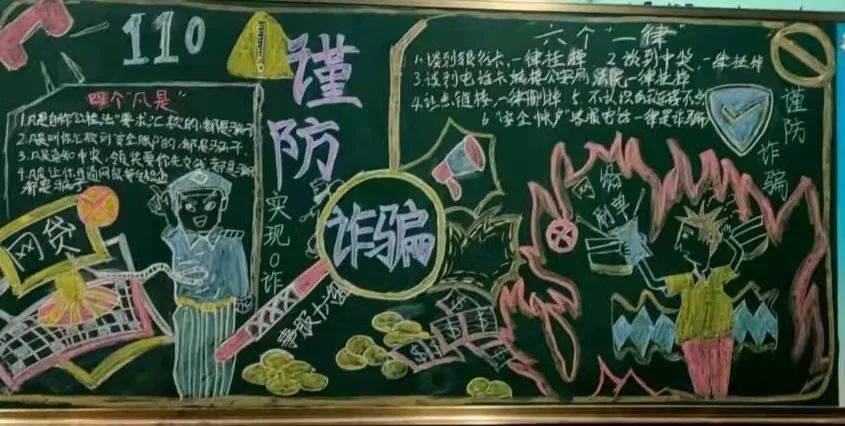 110
四个"凡是"
1.凡是自称公检法要求汇款的,都是骗子
2.凡是叫你汇款到安全账户的,都是骗子
3.凡是通知中奖、领奖要你先交钱都是骗子
4.凡是让你
都是骗子
网贷
谨防
诈骗
实现0诈
六个"一律"
1.谈到银行卡,一律挂掉 2.谈到中奖,一律挂掉
3.谈到电话卡转接公安局法院一律挂掉
4.让点链接,一律删掉 5.不认识的链接不点
6."安全帐户"等陌电话一律是诈骗
谨防诈骗
网络
刷单